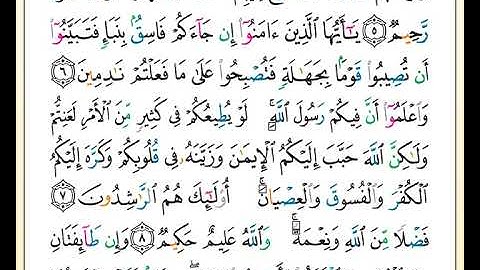 رَّحِيمٌ ٥ يَـٰٓأَيُّهَا ٱلَّذِينَ ءَامَنُوٓا۟ إِن جَآءَكُمْ فَاسِقٌۢ بِنَبَإٍ فَتَبَيَّنُوٓا۟
أَن تُصِيبُوا۟ قَوْمًۢا بِجَهَـٰلَةٍ فَتُصْبِحُوا۟ عَلَىٰ مَا فَعَلْتُمْ نَـٰدِمِينَ ٦
وَٱعْلَمُوٓا۟ أَنَّ فِيكُمْ رَسُولَ ٱللَّهِ ۚ لَوْ يُطِيعُكُمْ فِى كَثِيرٍ مِّنَ ٱلْأَمْرِ لَعَنِتُّمْ
وَلَـٰكِنَّ ٱللَّهَ حَبَّبَ إِلَيْكُمُ ٱلْإِيمَـٰنَ وَزَيَّنَهُۥ فِى قُلُوبِكُمْ وَكَرَّهَ إِلَيْكُمُ
ٱلْكُفْرَ وَٱلْفُسُوقَ وَٱلْعِصْيَانَ ۚ أُو۟لَـٰٓئِكَ هُمُ ٱلرَّٰشِدُونَ ٧
فَضْلًا مِّنَ ٱللَّهِ وَنِعْمَةً ۚ وَٱللَّهُ عَلِيمٌ حَكِيمٌ ٨ وَإِن طَآئِفَتَانِ